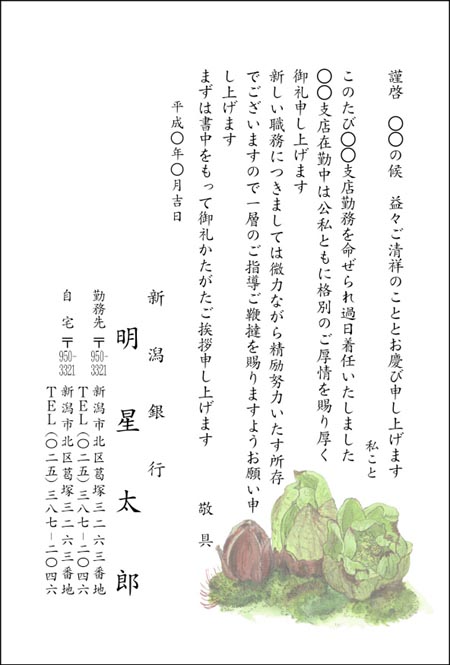 謹啓　〇〇の候　益々ご清祥のこととお慶び申し上げます
私こと
このたび〇〇支店勤務を命ぜられ過日着任いたしました
〇〇支店在勤中は公私ともに格別のご厚情を賜り厚く
御礼申し上げます
新しい職務につきましては微力ながら精励努力いたす所存
でございますので一層のご指導ご鞭撻を賜りますようお願い申
し上げます
まずは書中をもって御礼かたがたご挨拶申し上げます
敬具
平成〇年〇月吉日
新潟銀行
明星太郎
勤務先　〒950-3321　新潟市北区葛塚三二六三番地
ＴＥＬ（〇二五）三八七－二〇四六
自宅　〒950-3321　新潟市北区葛塚三二六三番地
ＴＥＬ（〇二五）三八七－二〇四六